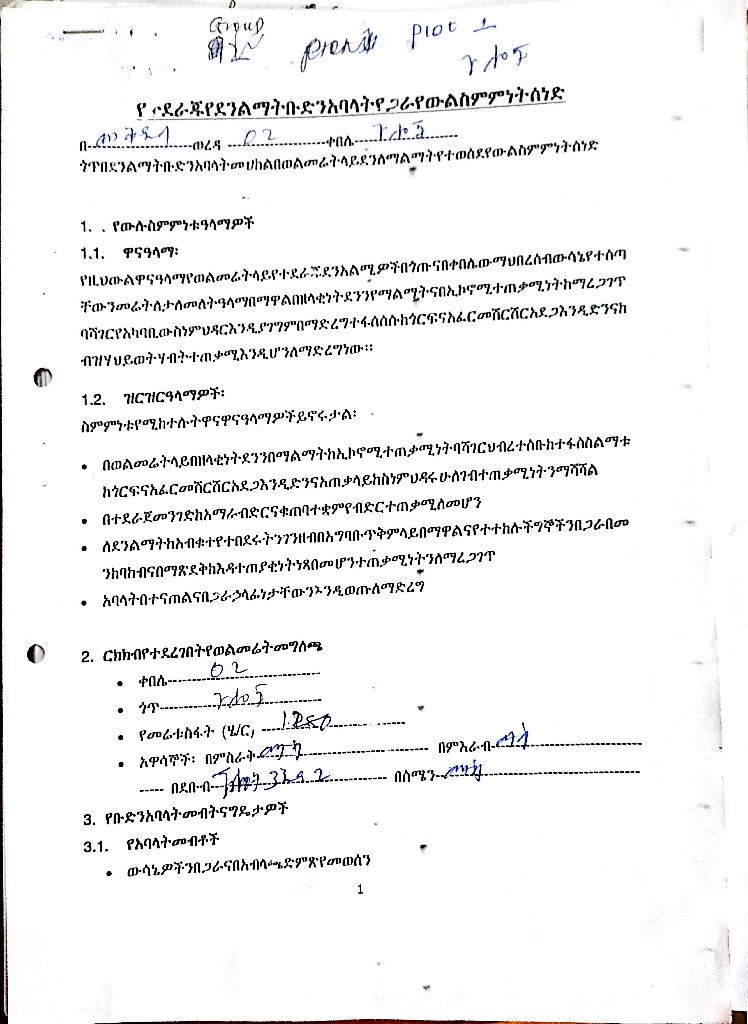 Group
Plot 1
የተደራጁየደንልማትቡድንአባላትየጋራየውልስምምነትሰነድ
በ-------------------ወረዳ ---02---------------ቀበሌ--------------------
ጎጥበደንልማትቡድንአባላትመሀከልበወልመሬትላይደንለማልማትየተወሰደየውልስምምነትሰነድ
1. . የውሉስምምነቱዓላማዎች
1.1. ዋናዓላማ፡
የዚህውልዋናዓላማየወልመሬትላይየተደራጁደንአልሚዎችበጎጡናበቀበሌውማህበረሰብውሳኔየተሰጣ
ቸውንመሬትለታለመለትዓላማበማዋልበዘላቂነትደንንየማልሚትናበኢኮኖሚተጠቃሚነትከማረጋገጥ
ባሻገርየአካባቢውስነምህዳርእንዲያገግምበማድረግተፋሰሱከጎርፍናአፈርመሸርሸርአደጋእንዲድንናከ
ብዝሃህይወትሃብትተጠቃሚእንዲሆንለማድረግነው፡፡
1.2. ዝርዝርዓላማዎች፡
ስምምነቱየሚከተሉትዋናዋናዓላማዎችይኖሩታል፡
• በወልመሬትላይበዘላቂነትደንንበማልማትከኢኮኖሚተጠቃሚነትባሻገርህብረተሰቡከተፋሰስልማቱ
ከጎርፍናአፈርመሸርሸርአደጋእንዲድንናአጠቃላይከስነምህዳሩሁለገብተጠቃሚነትንማሻሻል
• በተደራጀመንገድከአማራብድርናቁጠባተቋምየብድርተጠቃሚለመሆን
• ለደንልማትከአብቁተየተበደሩትንገንዘብበአግባቡጥቅምላይበማዋልናየተተከሉችግኞችንበጋራበመ
ንከባከብናበማጽደቅከእዳተጠያቂነትነጻበመሆንተጠቃሚነትንለማረጋገጥ
• አባላትበተናጠልናበጋራኃላፊነታቸውንእንዲወጡለማድረግ
2. ርክክብየተደረገበትየወልመሬትመግለጫ
• ቀበሌ------02-----------------------
• ጎጥ--------------------------------
• የመሬቱስፋት (ሄ/ር, ----------------------------
• አዋሳኞች፡ በምስራቅ---------------------------------- በምእራብ----------------------------------
----- በደቡብ---------------------------------- በሰሜን----------------------------------
3. የቡድንአባላትመብትናግዴታዎች
3.1. የአባላትመብቶች
• ውሳኔዎችንበጋራናበአብላጫድምጽየመወሰን
1